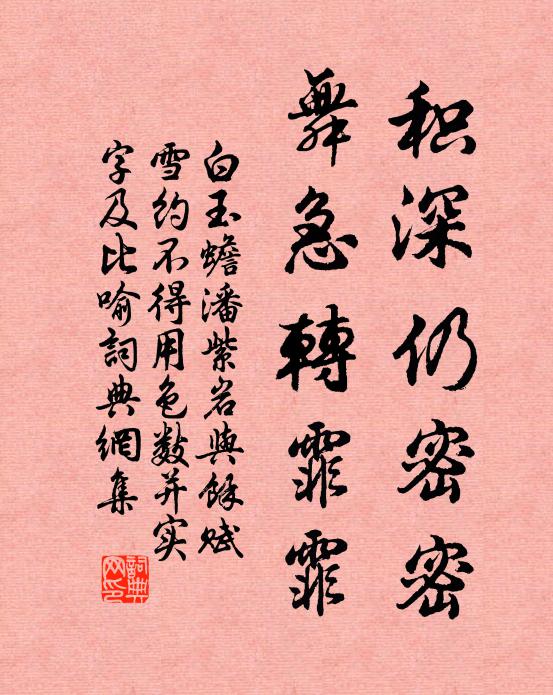 积深仍密密
舞急轉霏霏
白玉蟾潘紫岩與馀赋
雪约不得用色数并实
字及比喻詞典網集
詞典
网印